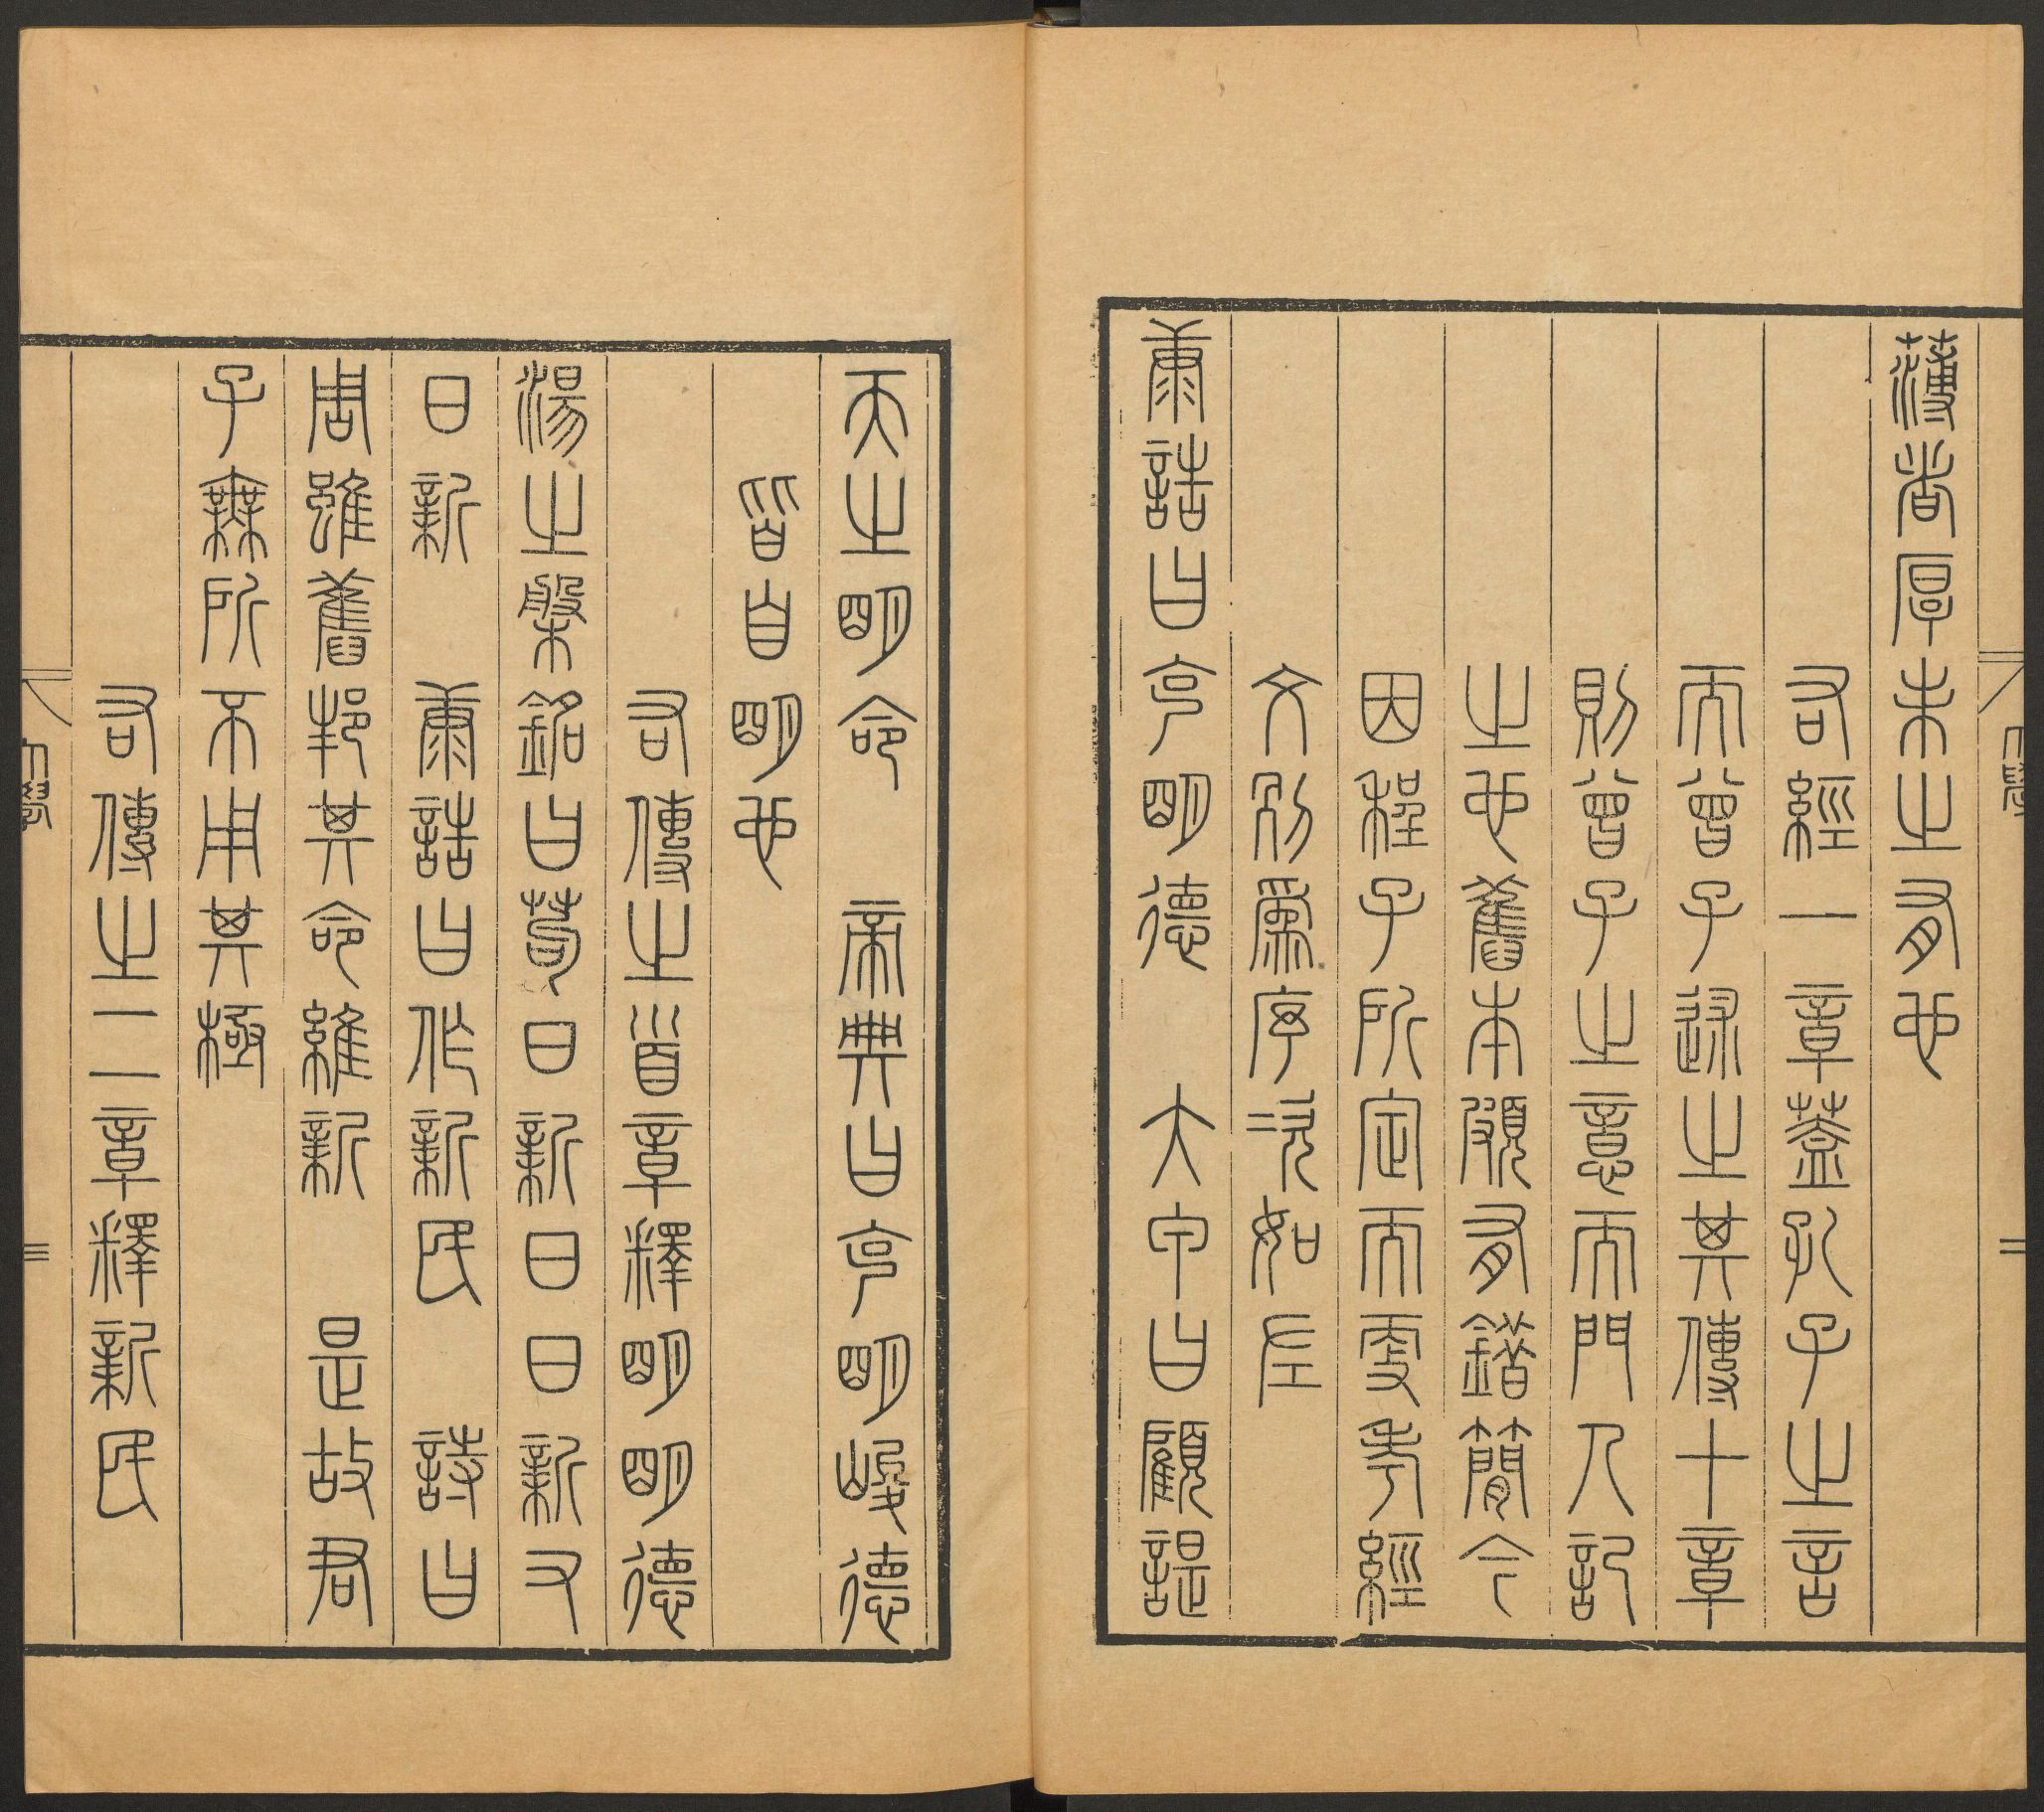 薄者厚未之有也
右經一章蓋孔子之言
而曾子述之其傳十章
則曾子之意而門人記
之也舊本頗有錯簡今
因程子所定而更考經
文別爲序次如左
康誥曰克明德　大甲曰顧諟
天之明命　帝典曰克明峻德
皆自明也
右傳之首章釋明明德
湯之槃銘曰苟日新日日新又
日新　康誥曰作新民　詩曰
周雖舊邦其命維新　是故君
子無所不用其極
右傳之二章釋新民
大學　三